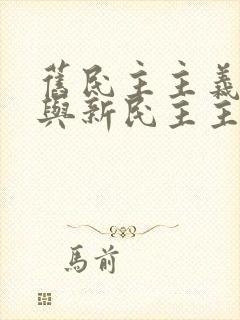 舊民主主義
與新民主主
馬前